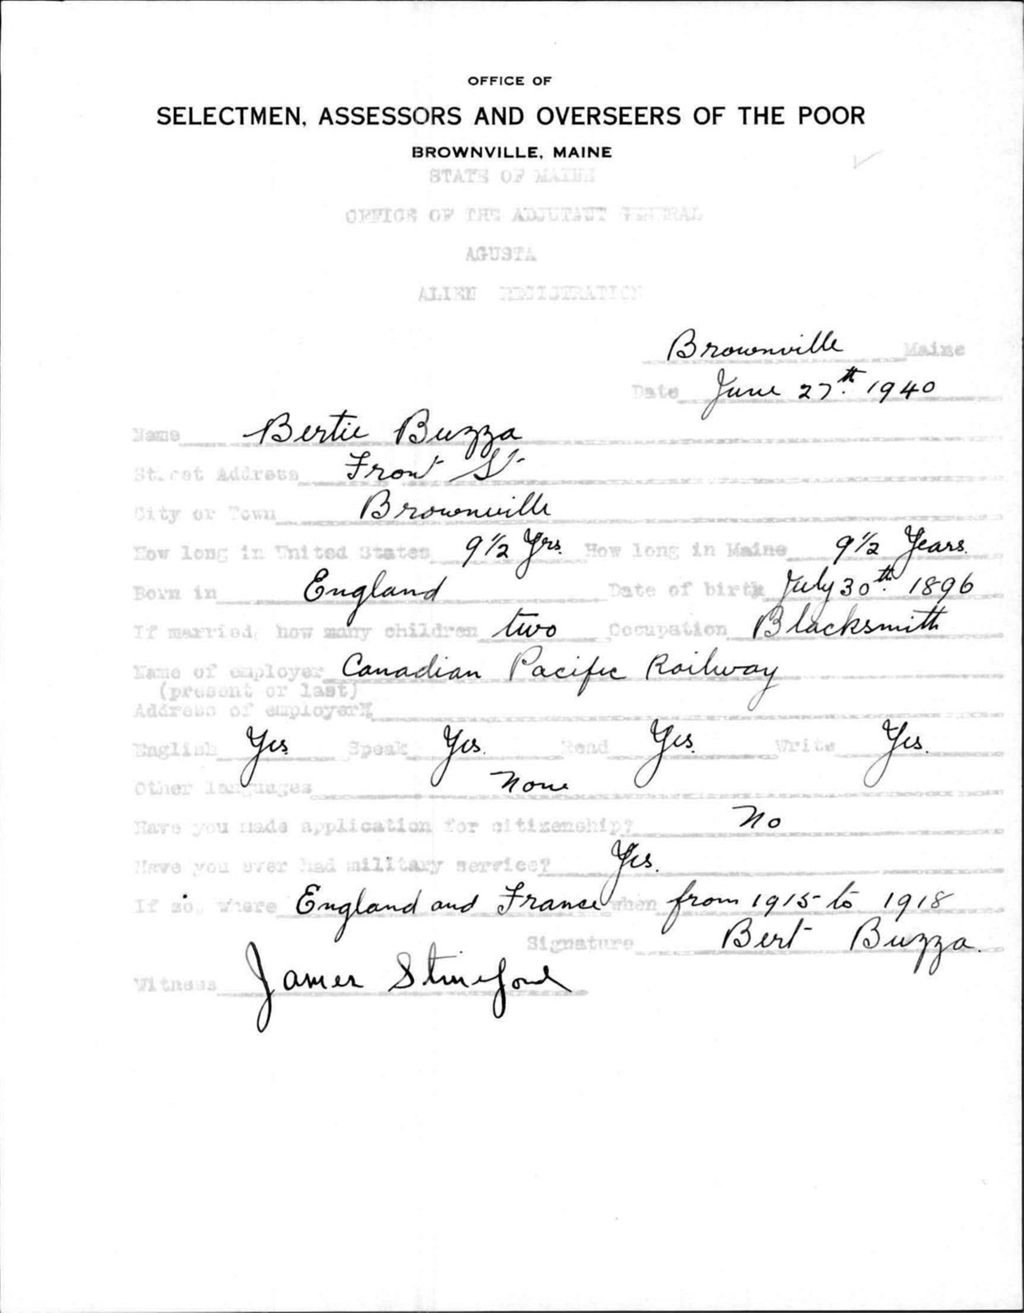 OFFICE OF
SELECTMEN, ASSESSORS AND OVERSEERS OF THE POOR
BROWNVILLE, MAINE
STATE OF MAINE
OFFICE OF THE ADJUTANT GENERAL
AGUSTA
ALIEN REGISTRATION
Brownville Maine
Date June 27th. 1940
Name Bertie Buzza
Street Address Front St
City or Town Brownville
How long in United States 9 1/2 Yrs. How long in Maine 9 1/2 Years.
Born in England Date of birth July 30th. 1896
If married, how many children two Occupation Blacksmith
Name of employer Canadian Pacific Railway
(present or last)
Address of employer
English Yes Speak Yes. Read Yes. Write Yes.
Other languages None
Have you made application for citizenship? No
Have you ever had military service? Yes.
If so, where England and France when from 1915 to 1918
Signature Bert Buzza.
Witness James